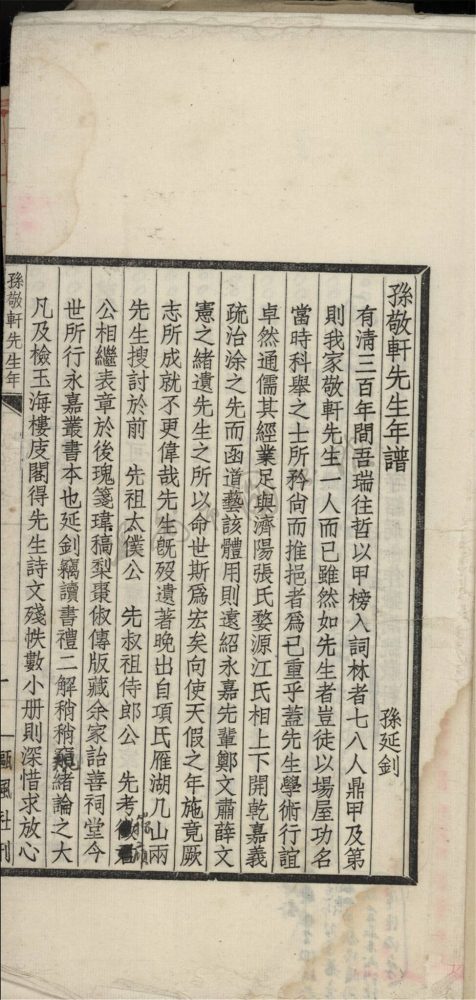 孫敬軒先生年譜
孫延釗
有淸三百年間吾瑞往哲以甲榜入詞林者七八人鼎甲及第
則我家敬軒先生一人而已雖然如先生者豈徒以塲屋功名
當時科舉之士所矜尙而推挹者爲已重乎蓋先生學術行誼
卓然通儒其經業足與濟陽張氏婺源江氏相上下開乾嘉義
疏治涂之先而函道藝該體用則遠紹永嘉先輩鄭文肅薛文
憲之緒遺先生之所以命世斯爲宏矣向使天假之年施竟厥
志所成就不更偉哉先生旣歿遺著晚出自項氏雁湖几山兩
先生搜討於前　先祖太僕公　先叔祖侍郎公　先考
公相繼表章於後瑰箋瑋稿梨棗俶傳版藏余家詒善祠堂今
世所行永嘉叢書本也延釗竊讀書禮二解稍稍窺緒論之大
凡及檢玉海樓庋閣得先生詩文殘帙數小册則深惜求放心
孫敬軒先生年
一
甌風社刊